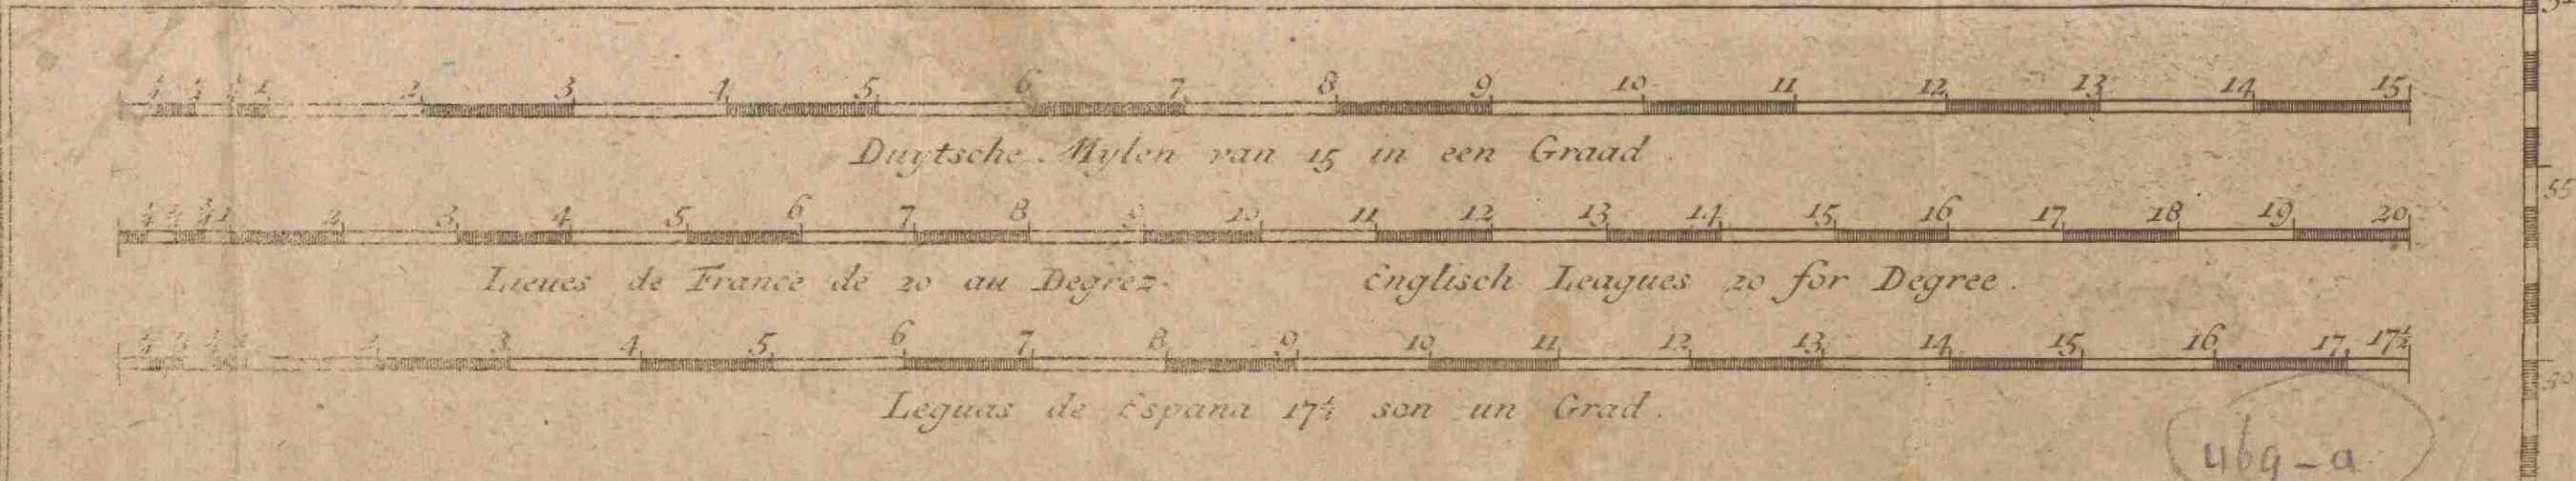 ¼ ½ ¾ 1 2 3 4 5 6 7 8 9 10 11 12 13 14 15
Duytsche Mylen van 15 in een Graad
¼ ½ ¾ 1 2 3 4 5 6 7 8 9 10 11 12 13 14 15 16 17 18 19 20
Lieues de France de 20 au Degrez. Englisch Leagues 20 for Degree.
¼ ½ ¾ 1 2 3 4 5 6 7 8 9 10 11 12 13 14 15 16 17 17½
Leguas de Espana 17½ son un Grad.
55
50